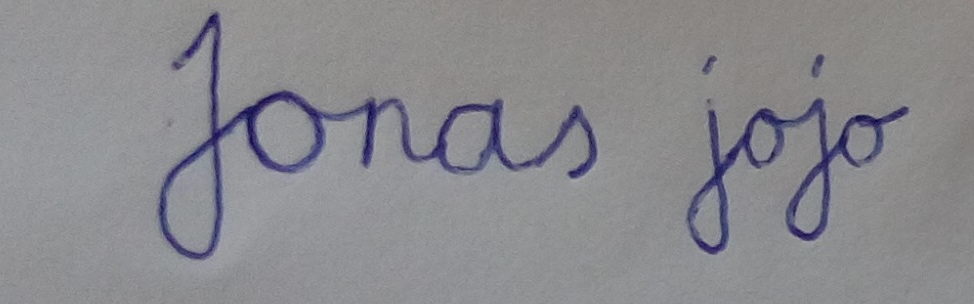 Jonas jojo